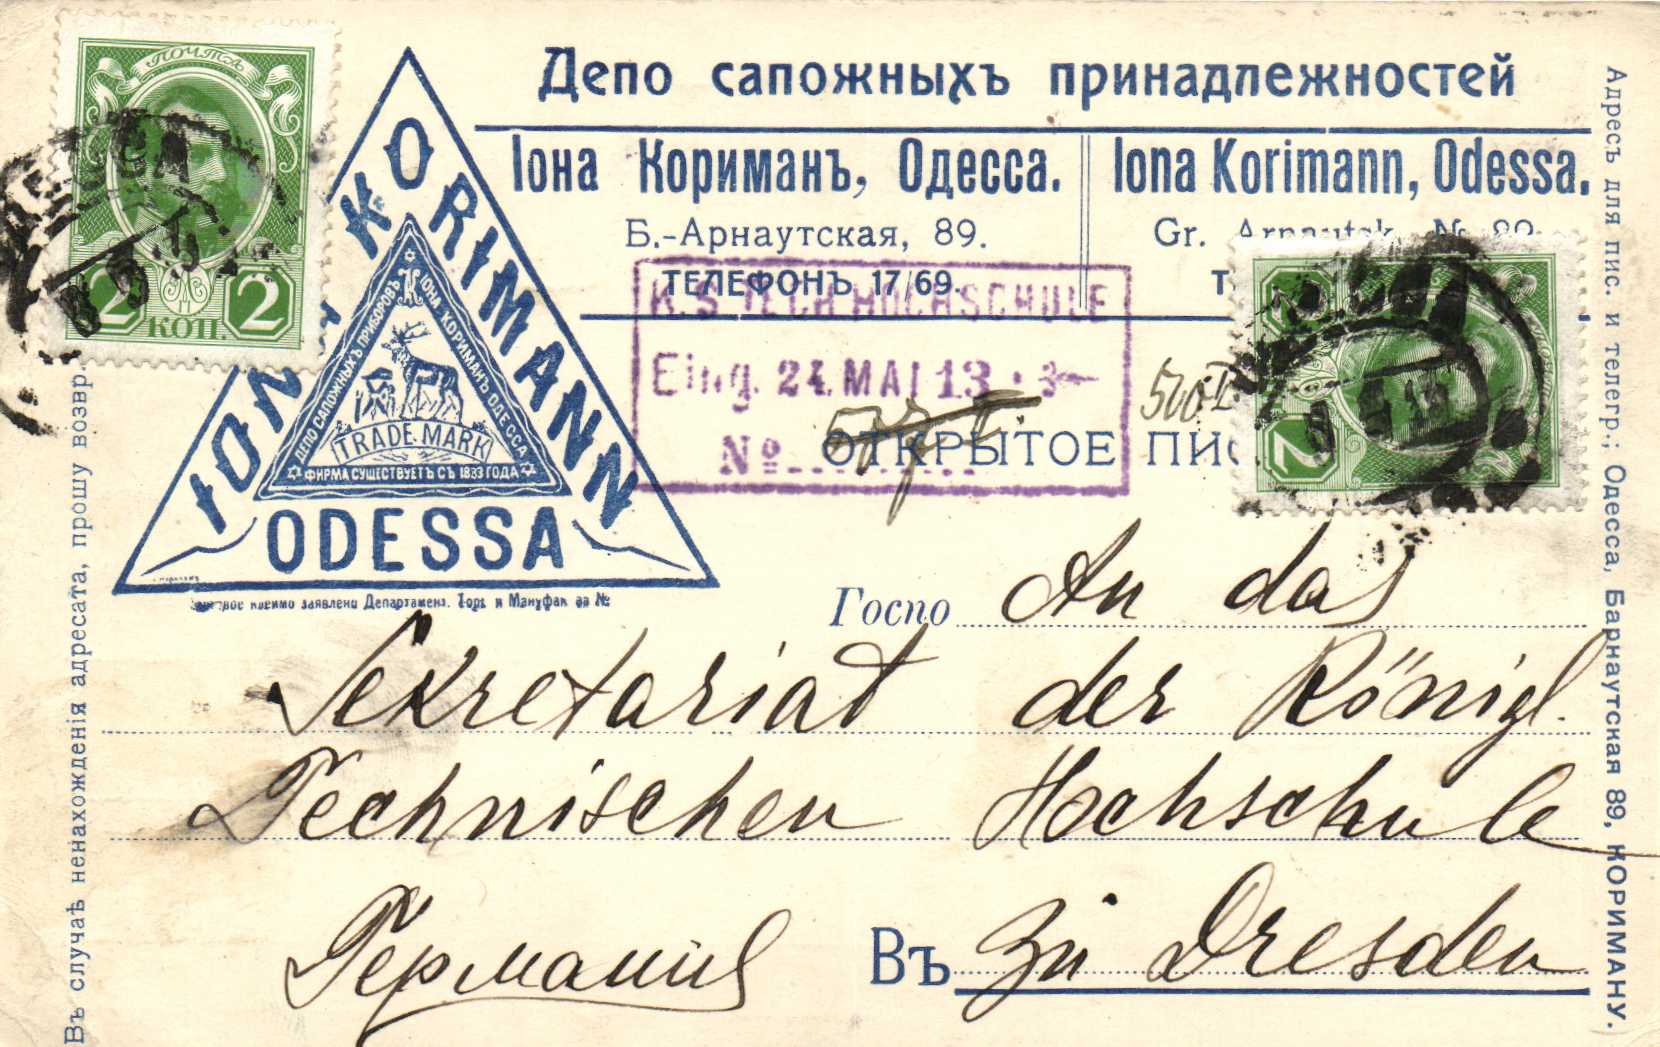 Депо сапожныхъ принадлежностей
Іона Кориманъ, Одесса.
Б.-Арнаутская, 89.
ТЕЛЕФОНЪ 17/69.
Iona Korimann, Odessa.
Gr. Arnautsk. № 89
ПОЧТА
2 2
КОП.
ОДЕССА
IONA KORIMANN
ODESSA
ДЕПО САПОЖНЫХЪ ПРИБОРОВЪ
ІОНА КОРИМАНЪ ОДЕССА
TRADE MARK
ФИРМА СУЩЕСТВУЕТЪ СЪ 1833 ГОДА
заявлени Департамент. Торг. и Мануфак за №
K.S. TECH. HOCHSCHULE
Eing. 24. MAI 13
№
ОТКРЫТОЕ ПИС
2 2
Госпо An das
Sekretariat der Königl.
Technischen Hochschule
Германия Въ zu Dresden
Въ случаѣ ненахожденія адресата, прошу возвр.
Адресъ для пис. и телегр.: Одесса, Барнаутская 89, КОРИМАНУ.